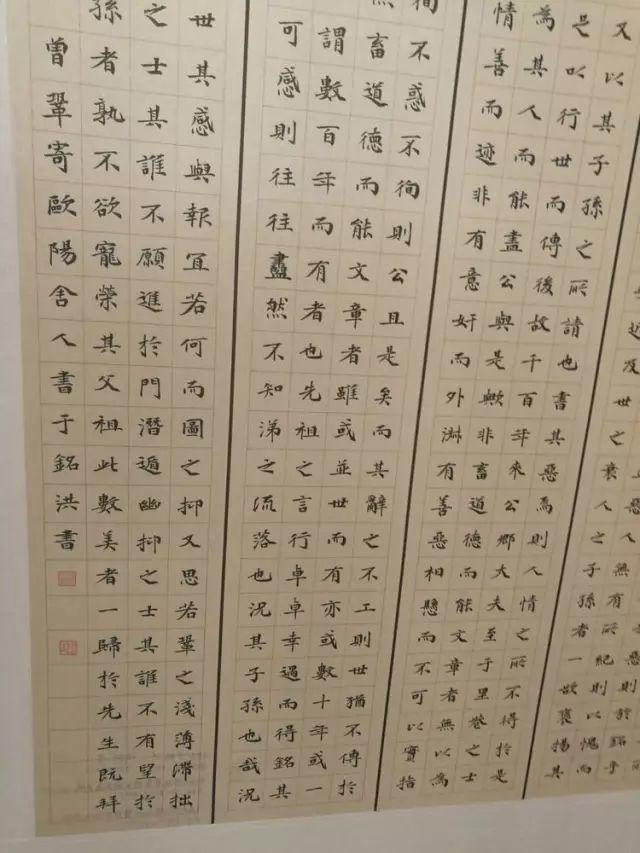 惡則於銘乎
惡人無有所紀則以愧而
近及世之衰人之子孫者一欲褒揚其
又以其子孫之所請也書其惡焉則人情之所不得於是
是以行世而傳後故千百年來公卿大夫至于里巷之士
為其人而能盡公與是歟非畜道德而能文章者無以為
情善而迹非有意奸而外淑有善惡相懸而不可以實指
徇不惑不徇則公且是矣而其辭之不工則世猶不傳於
畜道德而能文章者雖或並世而有亦或數十年或一
謂數百年而有者也先祖之言行卓卓幸遇而得銘其
可感則往往盡然不知涕之流落也況其子孫也哉況
世其感與報宜若何而圖之抑又思若鞏之淺薄滯拙
之士其誰不願進於門潛遁幽抑之士其誰不有望於
孫者孰不欲寵榮其父祖此數美者一歸於先生既拜
曾鞏寄歐陽舍人書于銘洪書